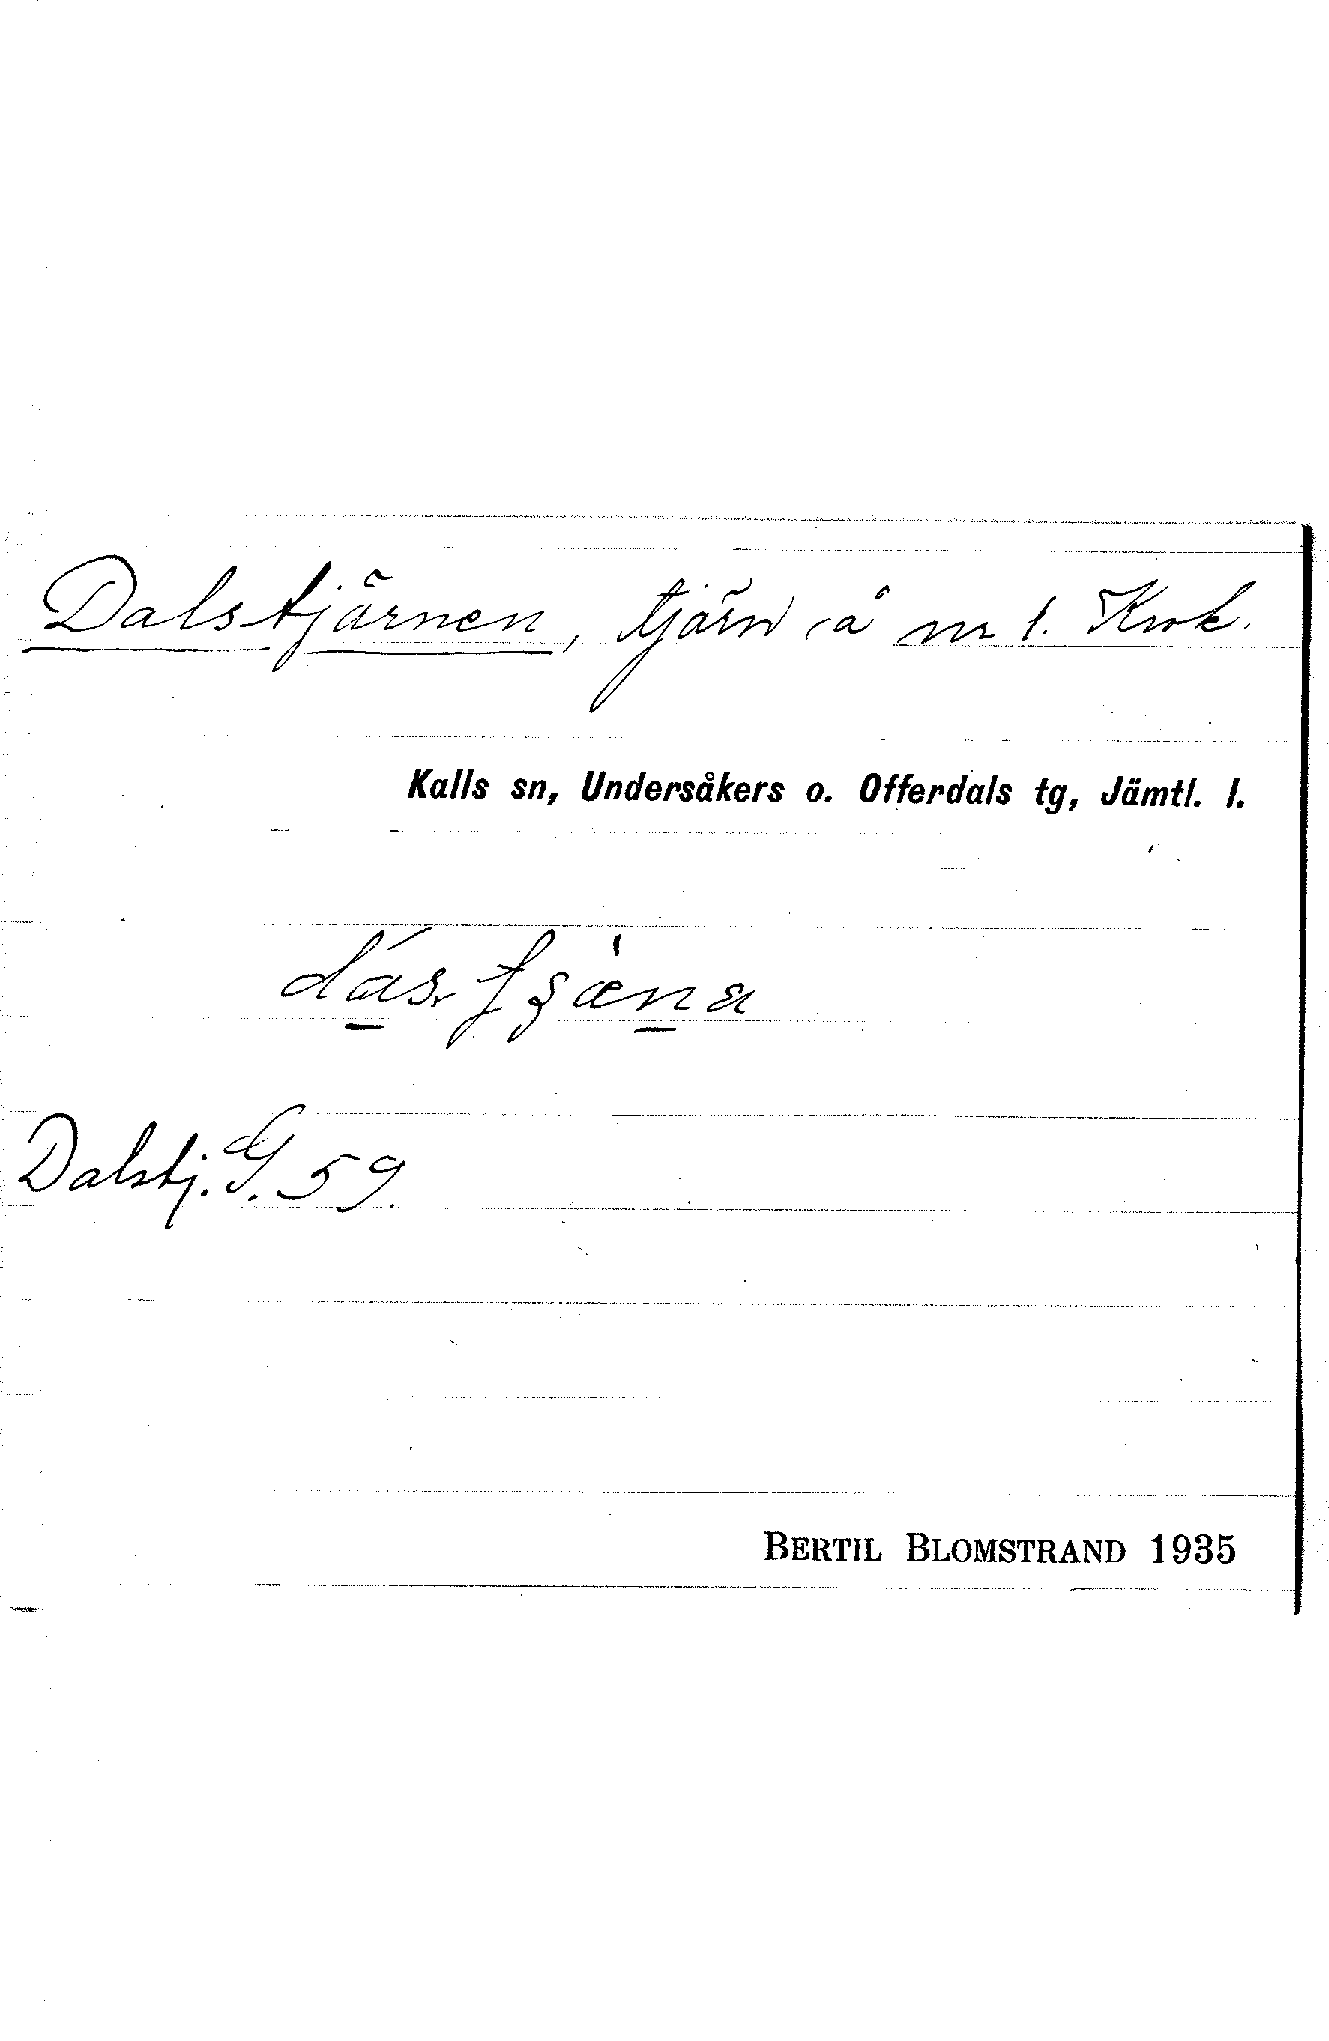 Dalstjärnen, tjärn å nr 1. Krok.
Kalls sn, Undersåkers o. Offerdals tg, Jämtl. l.
Dalstj. G. 59.
BERTIL BLOMSTRAND 1935